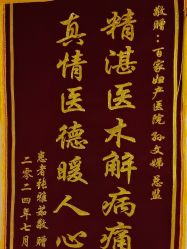 敬赠：百家妇产医院 孙文娣 惠鉴
精湛医术解病痛
真情医德暖人心
患者张雅茹敬赠
二零二四年七月